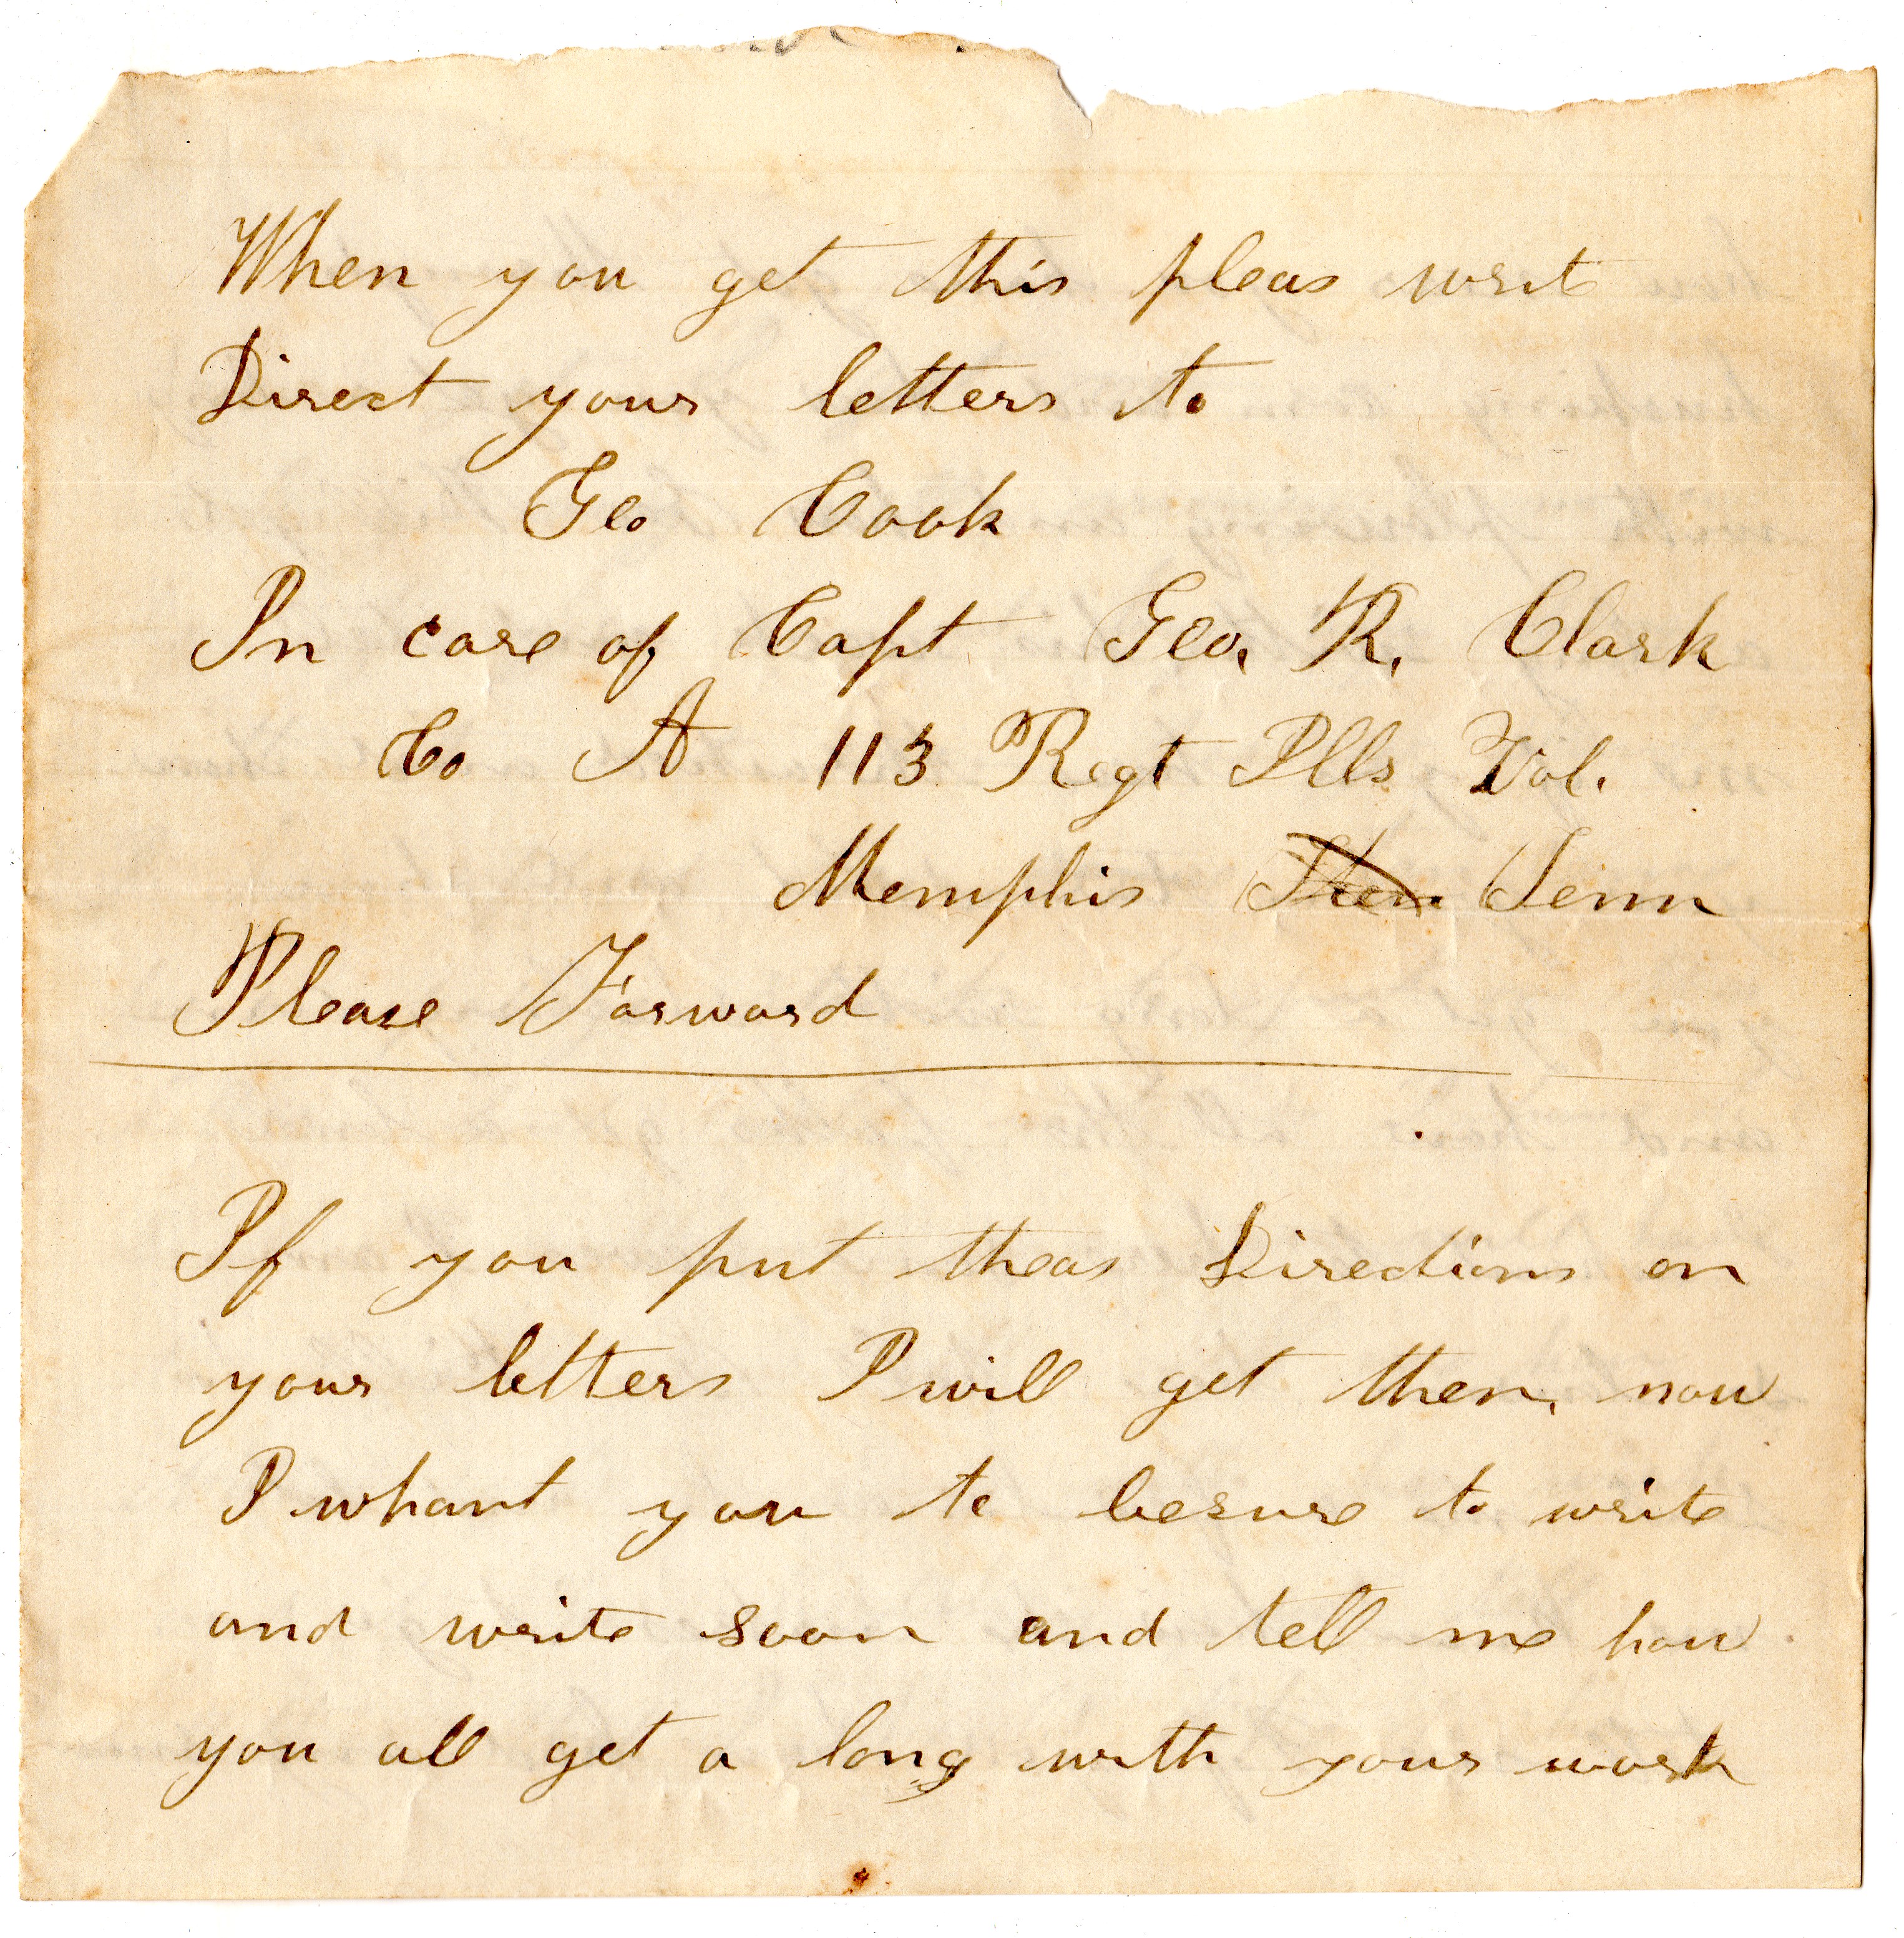 When you get this pleas write
Direct your letters to
Geo Cook
In care of Capt Geo. R. Clark
Co A 113 Regt Ills Vol.
Memphis Tenn
Please Forward
If you put theas Directions on
your letters I will get them, now
I whant you to besure to write
and write soon and tell me how
you all get a long with your work